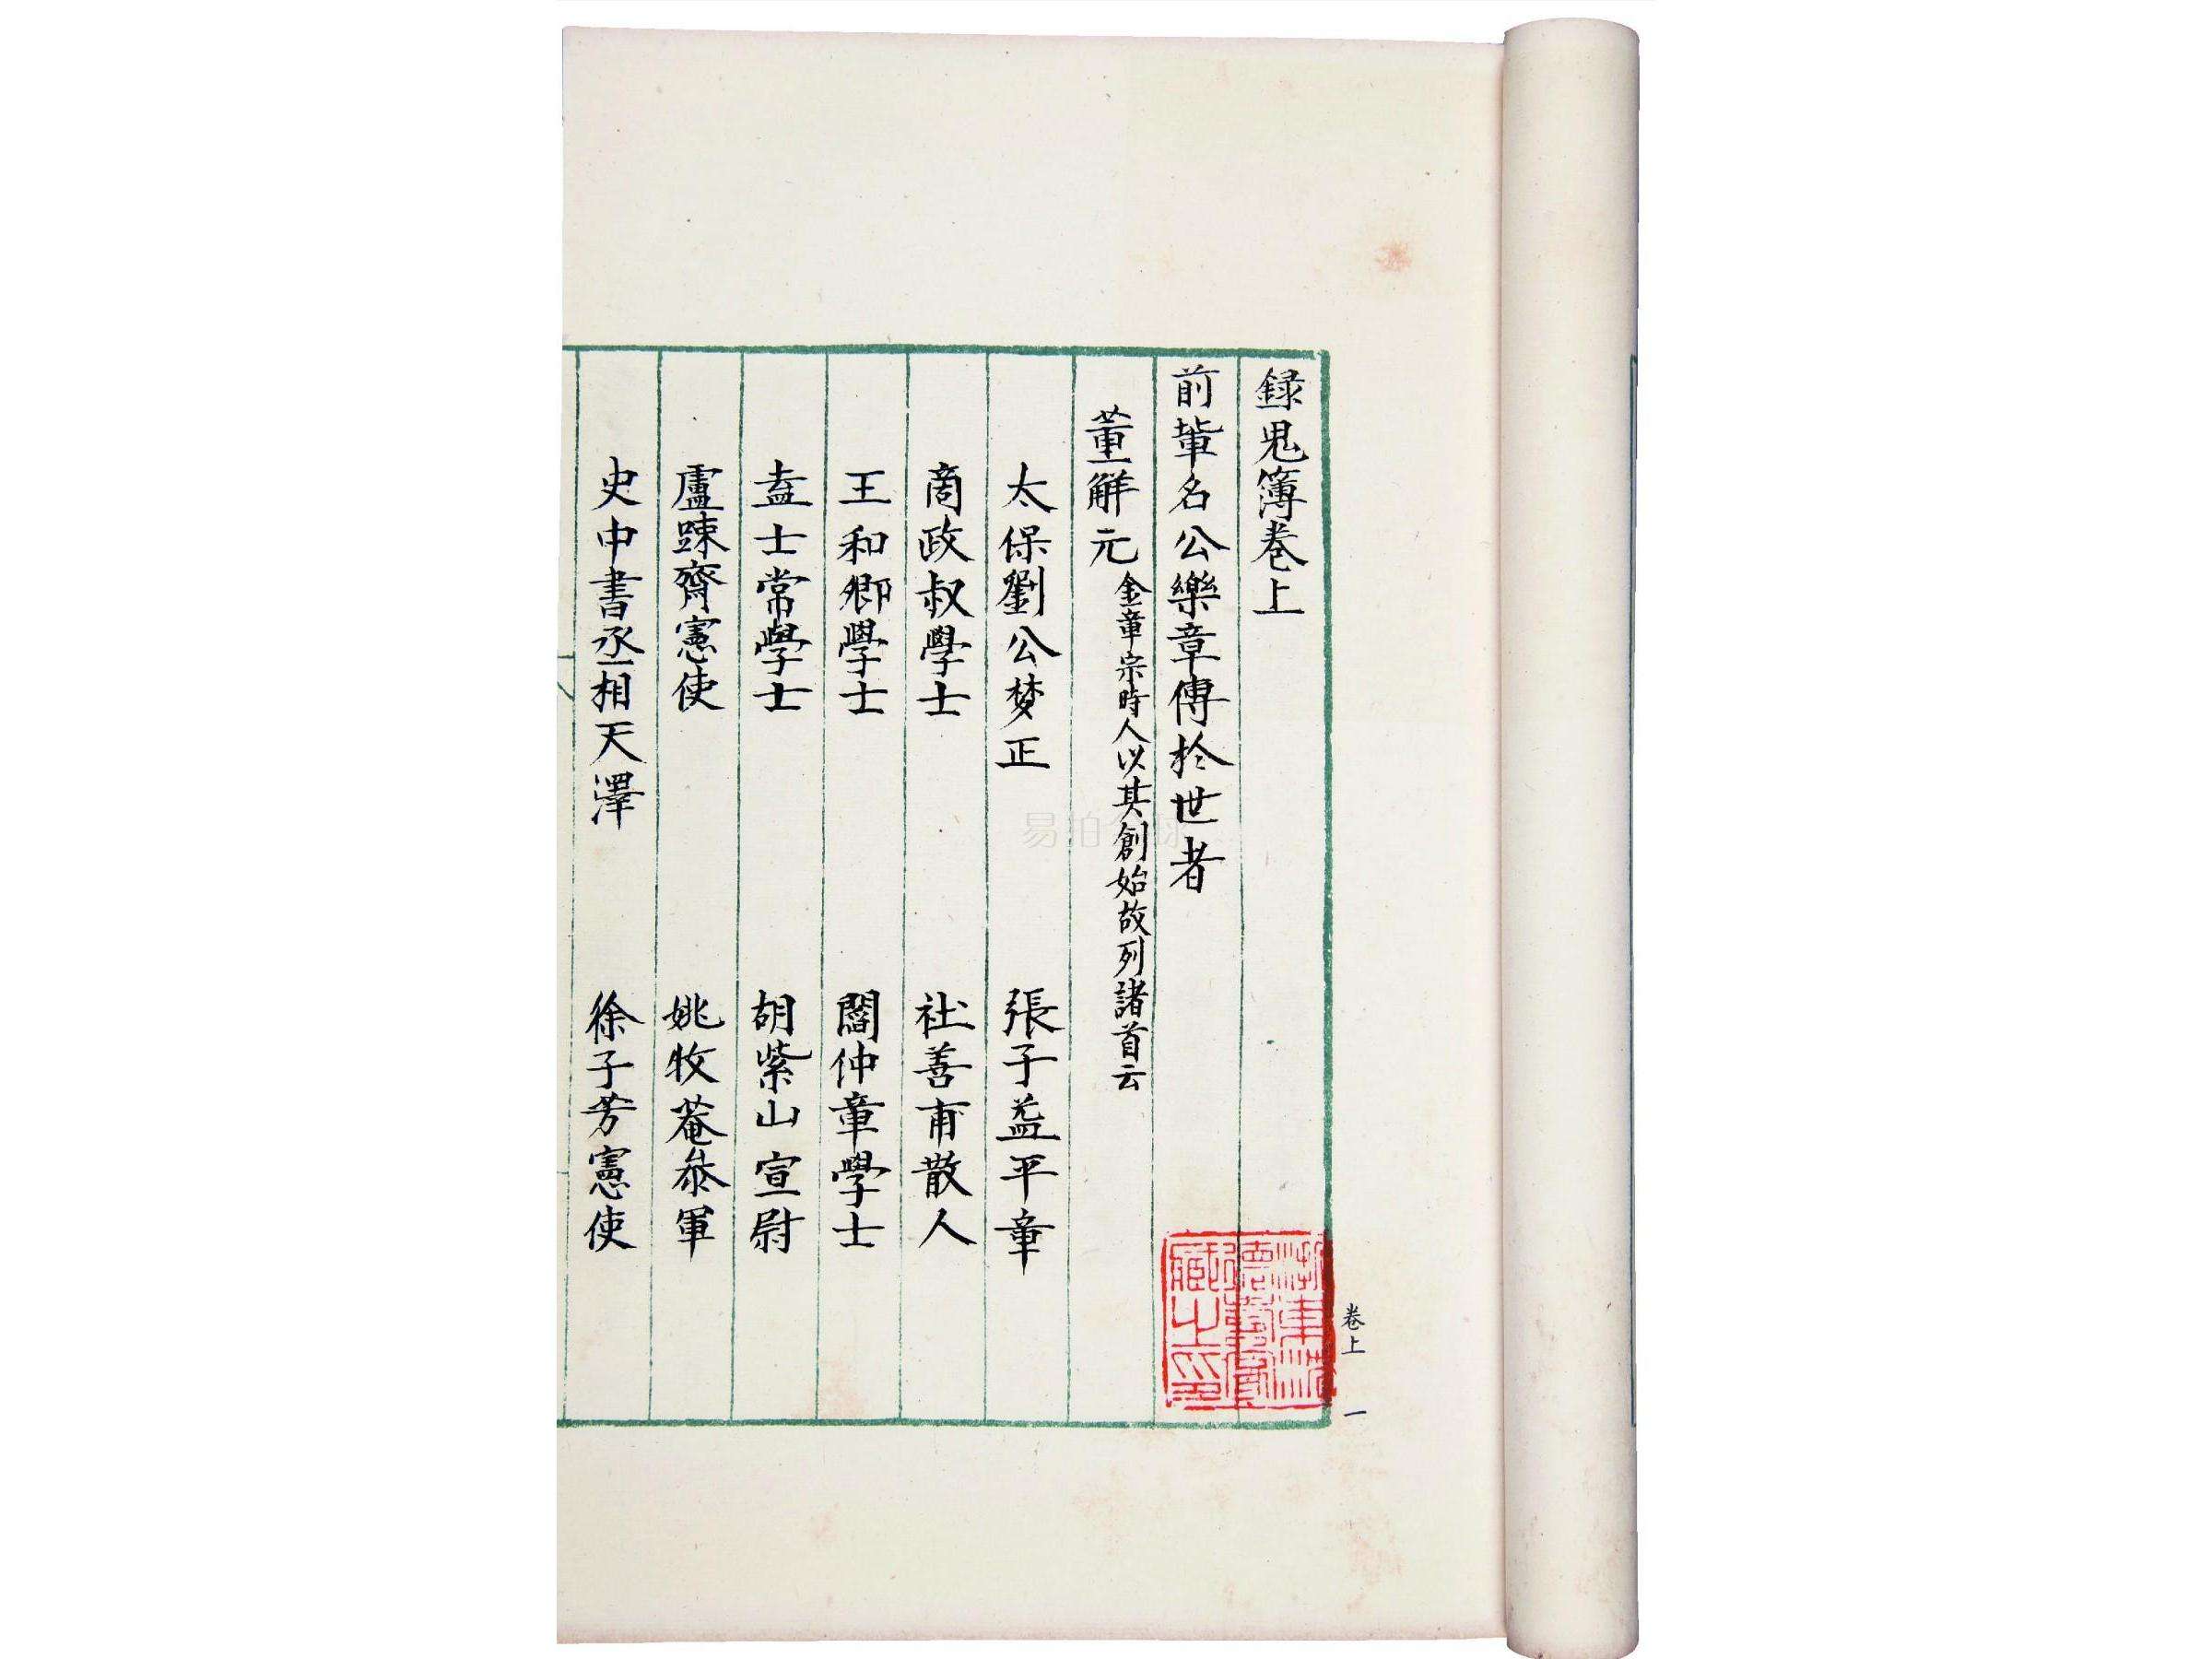 録鬼簿卷上
前輩名公樂章傳於世者
董解元 金章宗時人以其創始故列諸首云
太保劉公梦正 張子益平章
商政叔學士 社善甫散人
王和卿學士 閻仲章學士
盍士常學士 胡紫山宣尉
盧踈齊憲使 姚牧菴叅軍
史中書丞相天澤 徐子芳憲使
藏之印
卷上
一
易拍全球